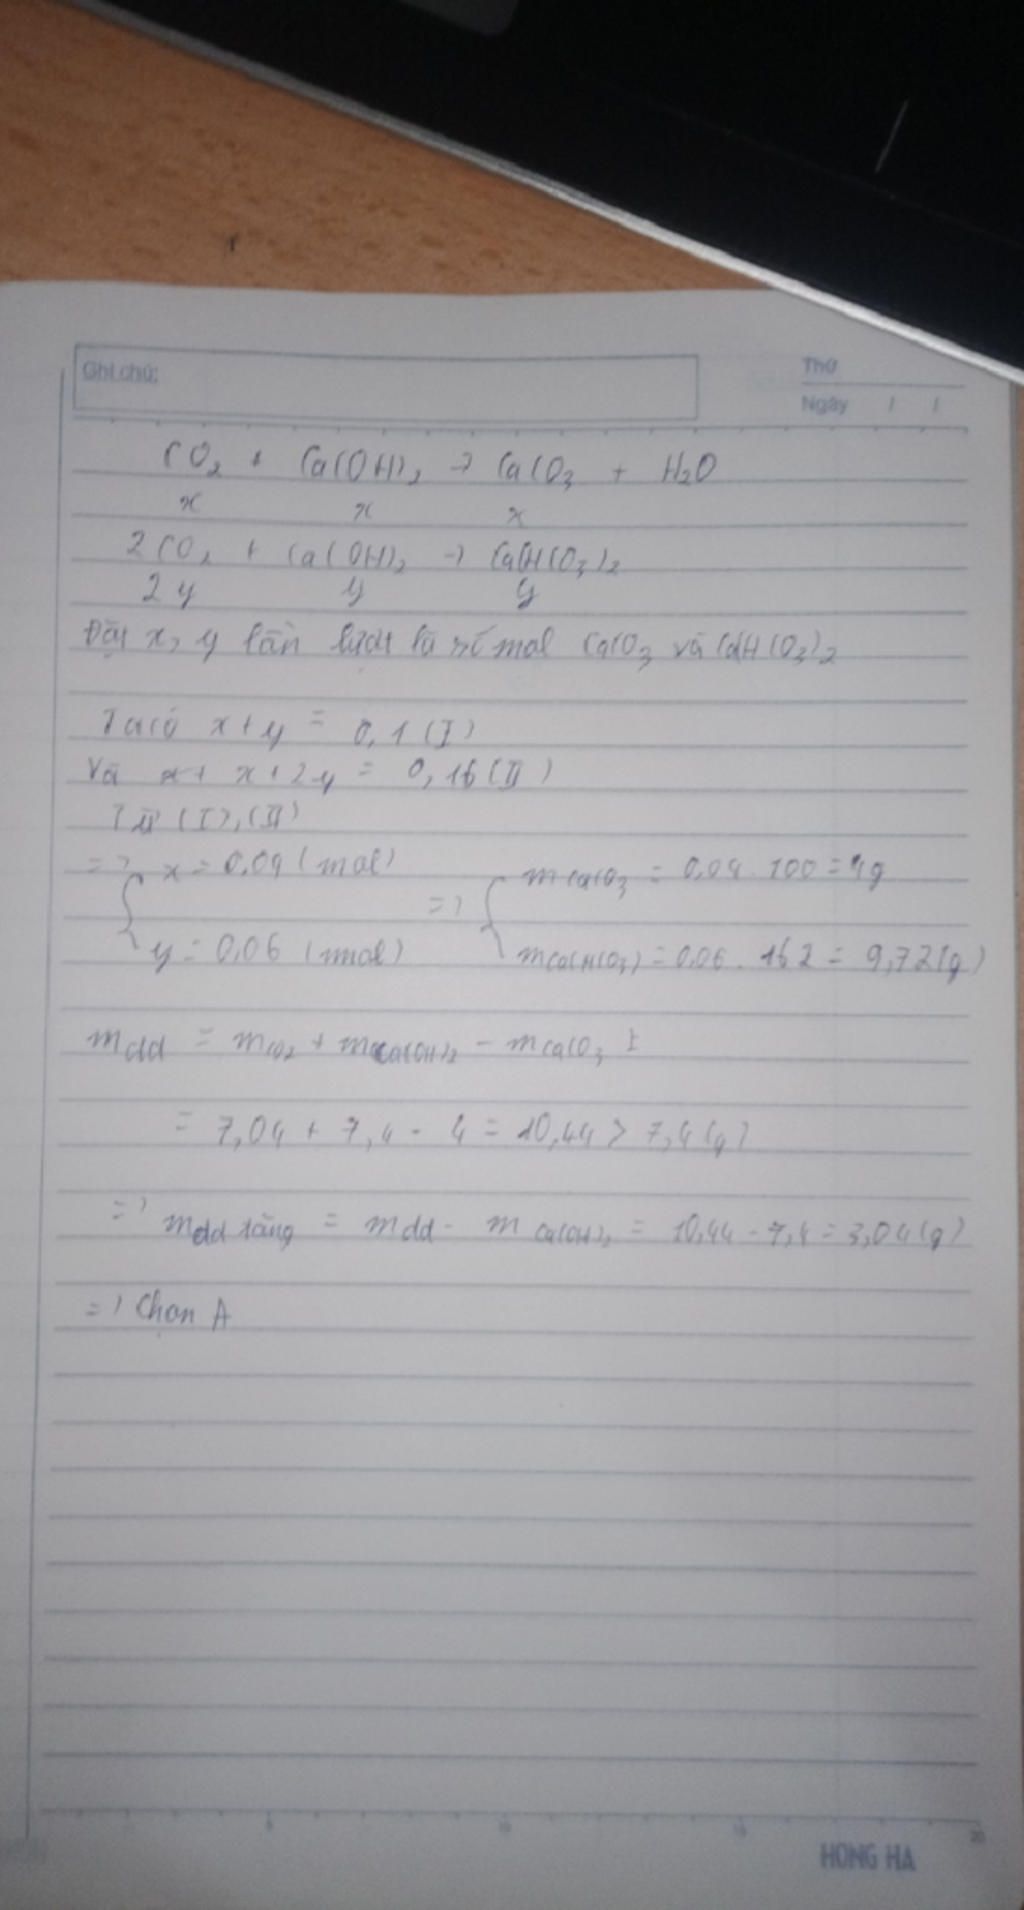 Ghi chú:
Thứ
Ngày / /
CO2 + Ca(OH)2 → CaCO3 + H2O
x x x
2CO2 + Ca(OH)2 → Ca(HCO3)2
2y y y
Đặt x, y lần lượt là số mol CaCO3 và Ca(HCO3)2
Ta có x + y = 0,1 (I)
Và x + 2y = 0,16 (II)
Từ (I), (II)
=> { x = 0,04 (mol) => { mCaCO3 = 0,04 . 100 = 4g
y = 0,06 (mol) mCa(HCO3) = 0,06 . 162 = 9,72(g)
mdd = mCO2 + mCa(OH)2 - mCaCO3
= 7,04 + 7,4 - 4 = 10,44 > 7,4 (g)
=> mdd tăng = mdd - mCa(OH)2 = 10,44 - 7,4 = 3,04(g)
=> Chọn A
5 10 15 20
HONG HA